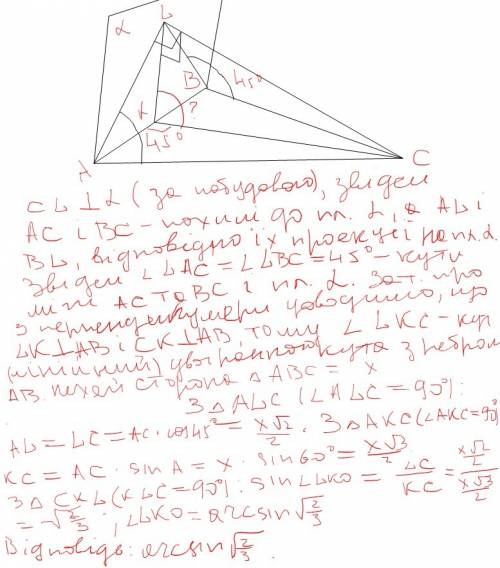 α
L
B
45°
K
?
45°
A
C
CL ⊥ α (за побудовою), звідси
AC і BC - похилі до пл. α, а AL і
BL, відповідно їх проекції на пл. α.
Звідси ∠LAC = ∠LBC = 45° - кути
між AC та BC і пл. α. За т. про
3 перпендикуляри доводимо, що
LK⊥AB і CK⊥AB, тому ∠LKC - кут
(лінійний) двогранного кута з ребром
AB. Нехай сторона △ABC = x
З △ALC (∠ALC = 90°):
AL = LC = AC · cos45° = x√2/2. З △AKC (∠AKC = 90°)
KC = AC · sin A = x · sin60° = x√3/2
З △CKL (KLC = 90°): sin∠LKO = LC/KC = (x√2/2)/(x√3/2)
= √(2/3); ∠LKO = arcsin√(2/3)
Відповідь: arcsin√(2/3).